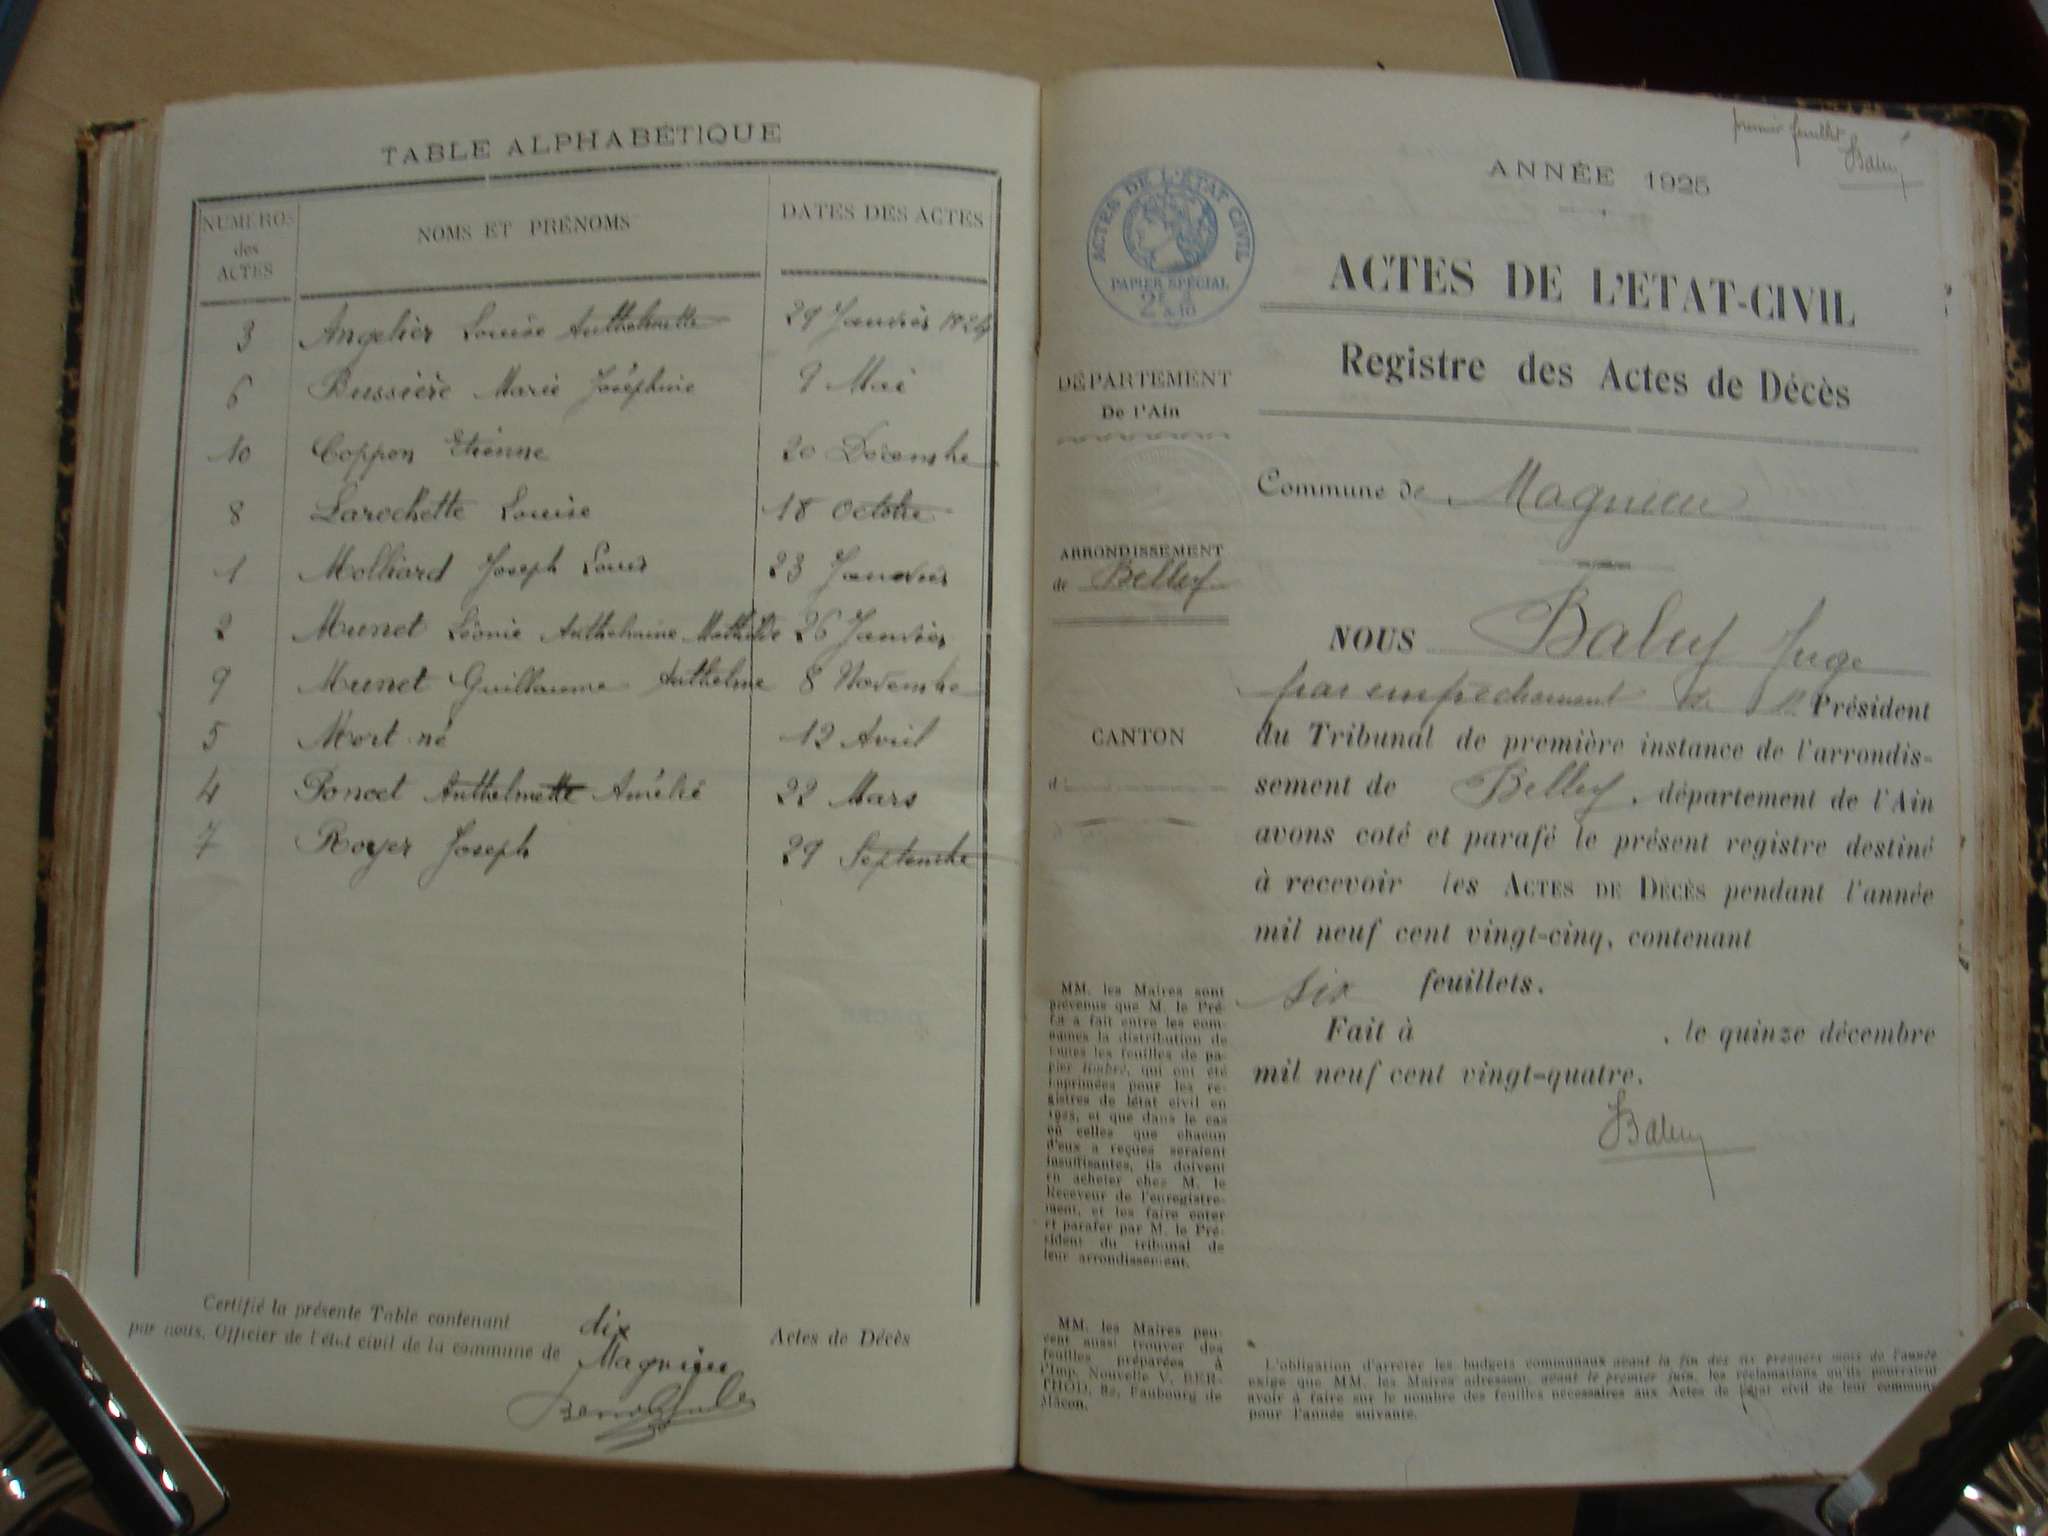 TABLE ALPHABÉTIQUE
NUMÉROS des ACTES
NOMS ET PRÉNOMS
DATES DES ACTES
3 Angelier Louise Anthelmette 29 Janvier 1924
6 Bussière Marie Joséphine 9 Mai
10 Coppon Etienne 20 Décembre
8 Larochette Louise 18 Octobre
1 Molliard Joseph Louis 23 Janvier
2 Munet Léonie Anthelmine Mathilde 26 Janvier
9 Munet Guillaume Anthelme 8 Novembre
5 Mort-né 12 Avril
4 Poncet Anthelmette Amélie 22 Mars
7 Royer Joseph 29 Septembre
Certifié la présente Table contenant dix Actes de Décès
par nous, Officier de l'état civil de la commune de Magnieu
premier feuillet
Baluy
ANNÉE 1925
ACTES DE L'ÉTAT CIVIL
PAPIER SPÉCIAL
ACTES DE L'ETAT-CIVIL
Registre des Actes de Décès
DÉPARTEMENT
De l'Ain
Commune de Magnieu
ARRONDISSEMENT
de Belley
NOUS Baluy Juge
par empechement de M. Président
CANTON
du Tribunal de première instance de l'arrondis-
sement de Belley, département de l'Ain
avons coté et parafé le présent registre destiné
à recevoir les ACTES DE DÉCÈS pendant l'année
mil neuf cent vingt-cinq, contenant
six feuillets.
Fait à , le quinze décembre
mil neuf cent vingt-quatre.
Baluy
MM. les Maires sont
prévenus que M. le Pré-
fet a fait entre les com-
munes la distribution de
toutes les feuilles de pa-
pier timbré, qui ont été
imprimées pour les re-
gistres de létat civil en
1925, et que dans le cas
où celles que chacun
d'eux a reçues seraient
insuffisantes, ils doivent
en acheter chez M. le
Receveur de l'enregistre-
ment, et les faire coter
et parafer par M. le Pré-
sident du tribunal de
leur arrondissement.
MM. les Maires peu-
vent aussi trouver des
feuilles préparées à
l'Imp. Nouvelle V. BER-
THOD, 82, Faubourg de
Mâcon.
L'obligation d'arrêter les budgets communaux avant la fin des six premiers mois de l'année
exige que MM. les Maires adressent, avant le premier juin, les réclamations qu'ils pourraient
avoir à faire sur le nombre des feuilles nécessaires aux Actes de l'état civil de leur commune
pour l'année suivante.